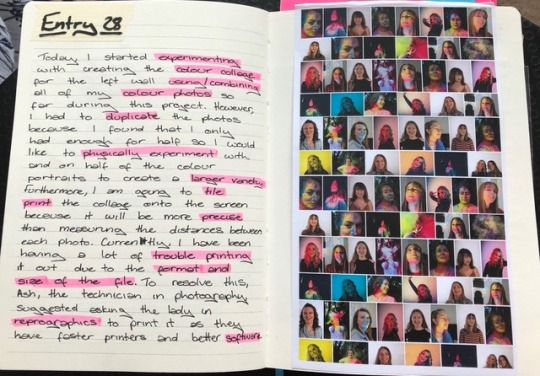 Entry 28
Today I started experimenting
with creating the colour collage
for the left wall using/combining
all of my colour photos so
far during this project. However,
I had to duplicate the photos
because I found that I only
had enough for half so I would
like to physically experiment with
and on half of the colour
portraits to create a larger variety
Furthermore, I am going to tile
print the collage onto the screen
because it will be more precise
than measuring the distances between
each photo. Currently, I have been
having a lot of trouble printing
it out due to the format and
size of the file. To resolve this,
Ash, the technician in photography
suggested asking the lady in
reprographics to print it as they
have faster printers and better software